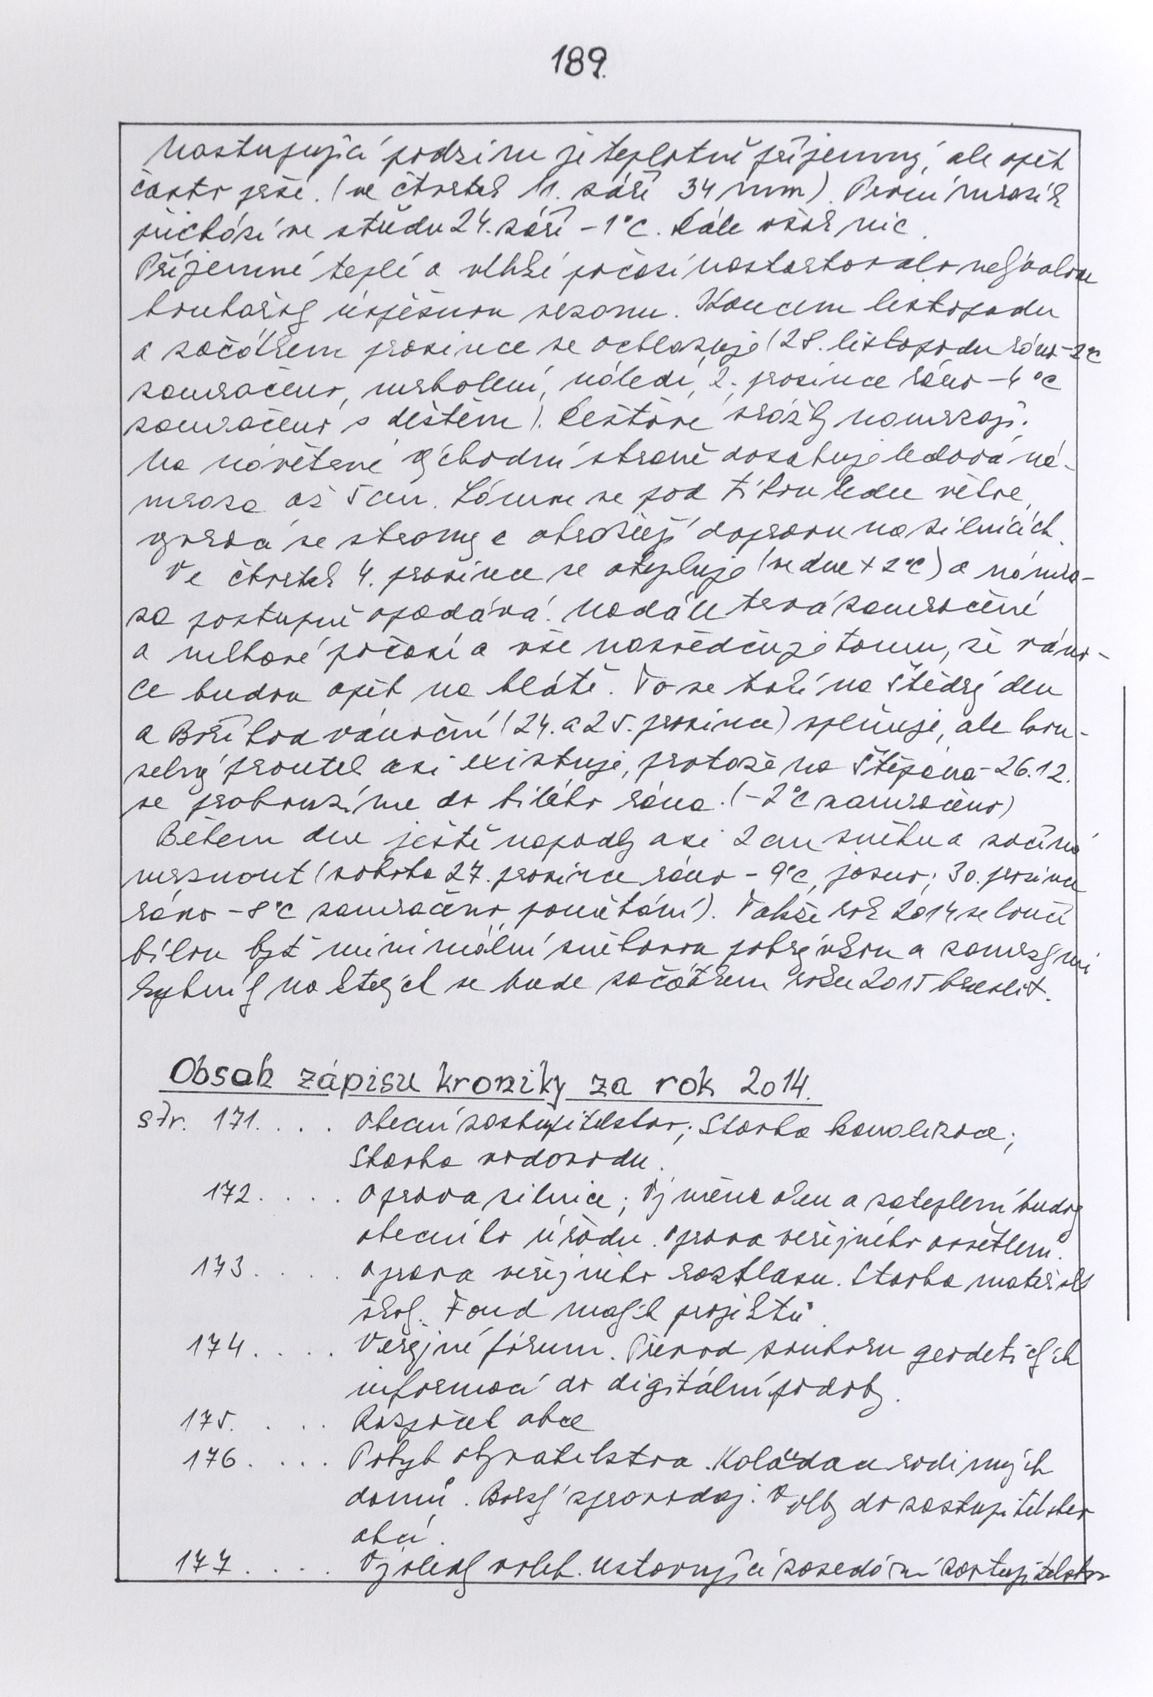 189.
Nastupující podzim je teplotně příjemný, ale opět
často prší. (ve čtvrtek 11. září 34 mm). První mrazík
přichází ve středu 24. září -1°C. Dále však nic.
Příjemné teplé a vlhké počasí nastartovalo nebývalou
houbařsky úspěšnou sezonu. Koncem listopadu
a začátkem prosince se ochlazuje (28. listopadu ráno -2°C
zamračeno, mrholení, náledí, 2. prosince ráno -4°C
zamračeno s deštěm). Dešťové srážky namrzají.
Na návětrné východní straně dosahuje ledová ná-
mraza až 5 cm. Lámou se pod tíhou ledu větve,
vyvrací se stromy a ohrožují dopravu na silnicích.
Ve čtvrtek 4. prosince se otepluje (ve dne +2°C) a námra-
za postupně opadává. Nadále trvá zamračené
a mlhavé počasí a vše nasvědčuje tomu, že váno-
ce budou opět na blátě. To se také na Štědrý den
a Boží hod vánoční (24. a 25. prosince) splňuje, ale kou-
zelný proutek asi existuje, protože na Štěpána - 26.12.
se probouzíme do bílého rána. (-2°C zamračeno)
Během dne ještě napadly asi 2 cm sněhu a začíná
mrznout (sobota 27. prosince ráno -9°C, jasno; 30. prosince
ráno -8°C zamračeno poměrně). Takže rok 2014 se loučí
bílou byť minimální sněhovou pokrývkou a zamrzlými
rybníky na kterých se bude začátkem roku 2015 bruslit.
Obsah zápisu kroniky za rok 2014.
str. 171. . . . Obecní zastupitelstvo; Stavba kanalizace;
Stavba vodovodu.
172. . . . Oprava silnice; Výměna oken a zateplení budovy
obecního úřadu. Oprava veřejného osvětlení.
173. . . . Oprava veřejného rozhlasu. Stavba mateřské
školy. Fond malých projektů.
174. . . . Veřejné fórum. Převod souboru geodetických
informací do digitální podoby.
175. . . . Rozpočet obce
176. . . . Pohyb obyvatelstva. Kolaudace rodinných
domů. Borský zpravodaj. Volby do zastupitelstev
obcí.
177. . . . Výsledky voleb. Ustavující zasedání zastupitelstva